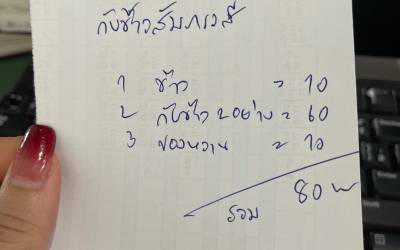 กับข้าวสัมภาวลี
1 ข้าว = 10
2 กับข้าว 2 อย่าง = 60
3 ของหวาน = 10
รวม 80 บ